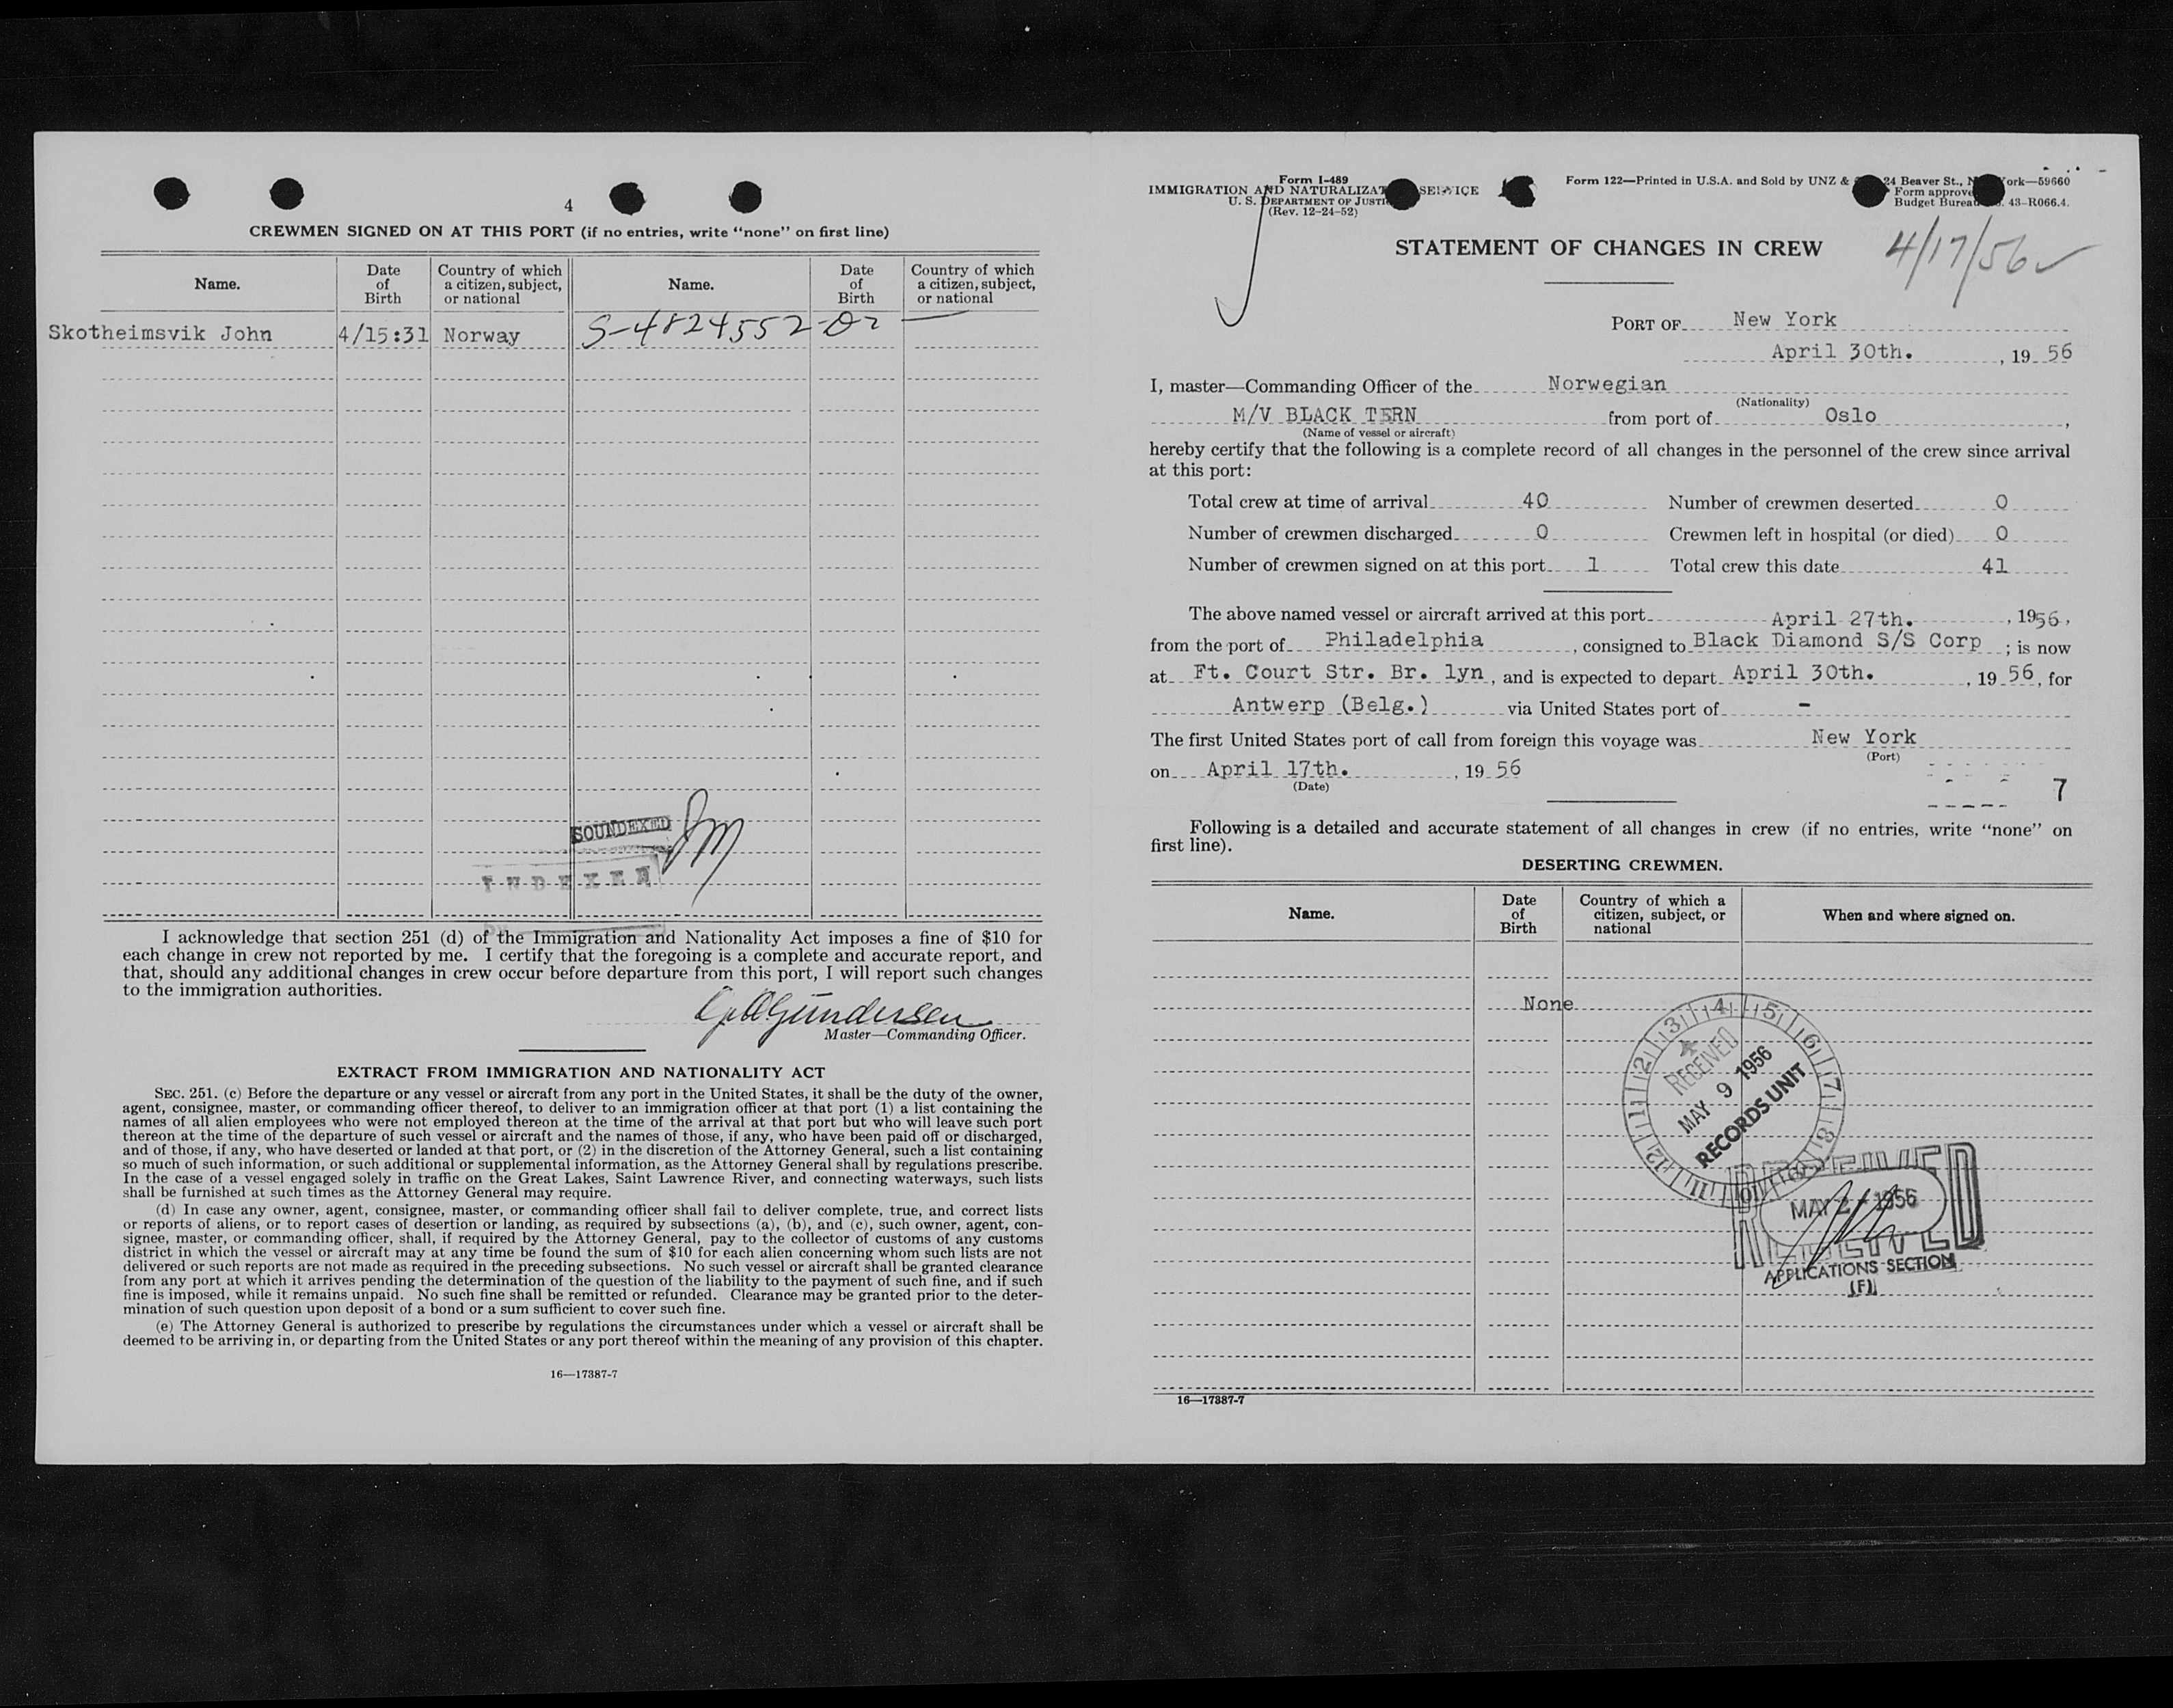 4
CREWMEN SIGNED ON AT THIS PORT (if no entries, write “none” on first line)
Name. Date of Birth Country of which a citizen, subject, or national Name. Date of Birth Country of which a citizen, subject, or national
Skotheimsvik John 4/15:31 Norway S-4824552
SOUNDEXED
INDEXED
I acknowledge that section 251 (d) of the Immigration and Nationality Act imposes a fine of $10 for
each change in crew not reported by me. I certify that the foregoing is a complete and accurate report, and
that, should any additional changes in crew occur before departure from this port, I will report such changes
to the immigration authorities.
Gundersen
Master—Commanding Officer.
EXTRACT FROM IMMIGRATION AND NATIONALITY ACT
SEC. 251. (c) Before the departure or any vessel or aircraft from any port in the United States, it shall be the duty of the owner,
agent, consignee, master, or commanding officer thereof, to deliver to an immigration officer at that port (1) a list containing the
names of all alien employees who were not employed thereon at the time of the arrival at that port but who will leave such port
thereon at the time of the departure of such vessel or aircraft and the names of those, if any, who have been paid off or discharged,
and of those, if any, who have deserted or landed at that port, or (2) in the discretion of the Attorney General, such a list containing
so much of such information, or such additional or supplemental information, as the Attorney General shall by regulations prescribe.
In the case of a vessel engaged solely in traffic on the Great Lakes, Saint Lawrence River, and connecting waterways, such lists
shall be furnished at such times as the Attorney General may require.
(d) In case any owner, agent, consignee, master, or commanding officer shall fail to deliver complete, true, and correct lists
or reports of aliens, or to report cases of desertion or landing, as required by subsections (a), (b), and (c), such owner, agent, con-
signee, master, or commanding officer, shall, if required by the Attorney General, pay to the collector of customs of any customs
district in which the vessel or aircraft may at any time be found the sum of $10 for each alien concerning whom such lists are not
delivered or such reports are not made as required in the preceding subsections. No such vessel or aircraft shall be granted clearance
from any port at which it arrives pending the determination of the question of the liability to the payment of such fine, and if such
fine is imposed, while it remains unpaid. No such fine shall be remitted or refunded. Clearance may be granted prior to the deter-
mination of such question upon deposit of a bond or a sum sufficient to cover such fine.
(e) The Attorney General is authorized to prescribe by regulations the circumstances under which a vessel or aircraft shall be
deemed to be arriving in, or departing from the United States or any port thereof within the meaning of any provision of this chapter.
16—17387-7
Form I-489
IMMIGRATION AND NATURALIZAT SERVICE
U. S. DEPARTMENT OF JUSTI
(Rev. 12-24-52)
Form 122—Printed in U.S.A. and Sold by UNZ & 24 Beaver St., N ork—59660
Form approve
Budget Bureau 43-R066.4.
STATEMENT OF CHANGES IN CREW
4/17/56
PORT OF New York
April 30th. , 19 56
I, master—Commanding Officer of the Norwegian
(Nationality)
M/V BLACK TERN from port of Oslo ,
(Name of vessel or aircraft)
hereby certify that the following is a complete record of all changes in the personnel of the crew since arrival
at this port:
Total crew at time of arrival 40 Number of crewmen deserted 0
Number of crewmen discharged 0 Crewmen left in hospital (or died) 0
Number of crewmen signed on at this port 1 Total crew this date 41
The above named vessel or aircraft arrived at this port April 27th. , 1956,
from the port of Philadelphia , consigned to Black Diamond S/S Corp ; is now
at Ft. Court Str. Br. lyn , and is expected to depart April 30th. , 19 56, for
Antwerp (Belg.) via United States port of -
The first United States port of call from foreign this voyage was New York
(Port)
on April 17th. , 19 56
(Date)
7
Following is a detailed and accurate statement of all changes in crew (if no entries, write “none” on
first line).
DESERTING CREWMEN.
Name. Date of Birth Country of which a citizen, subject, or national When and where signed on.
None
1 2 3 4 5 6 7 8 9 10 11 12
RECEIVED
MAY 9 1956
RECORDS UNIT
RECEIVED
MAY 2 - 1956
RECEIVED
APPLICATIONS SECTION
(F)
16—17387-7